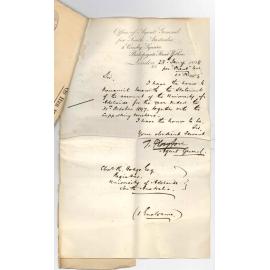 Office of Agent General
for South Australia
1 Crosby Square
Bishopsgate Street Within
London 28 Jany 1898
Sir,
I have the honor to
transmit herewith the Statement
of the account of the University of
Adelaide for the year ended the
31st October 1897, together with the
supporting vouchers.
I have the honor to be
Sir,
Your obedient Servant
T. Playford
Agent General
Chas R. Hodge Esq
Registrar
University of Adelaide
South Australia
(Enclosure)